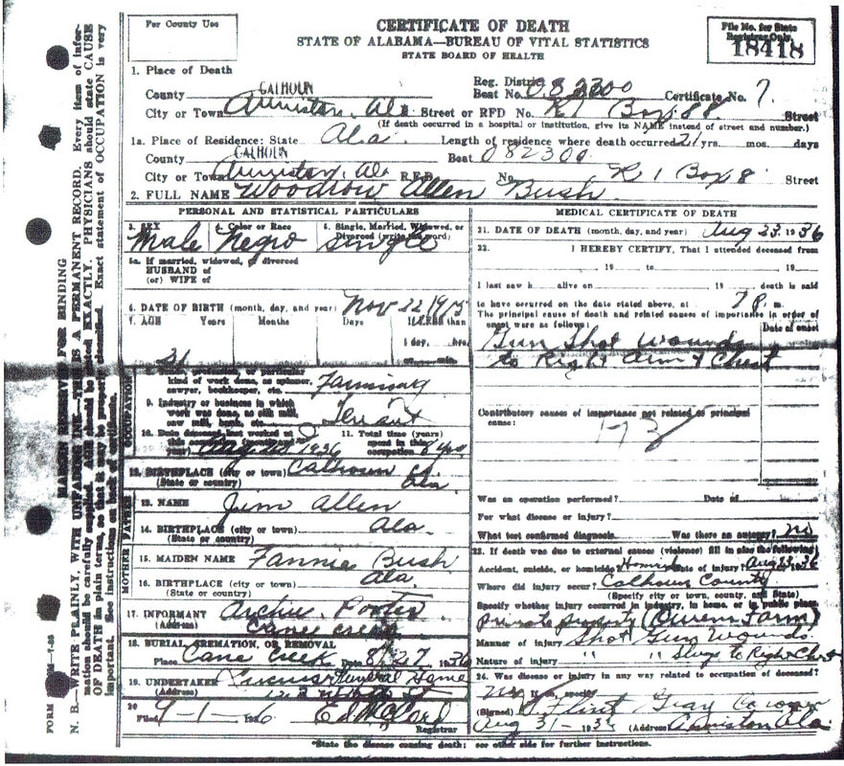 For County Use
CERTIFICATE OF DEATH
STATE OF ALABAMA—BUREAU OF VITAL STATISTICS
STATE BOARD OF HEALTH
File No. for State
Registrar Only.
18418
1. Place of Death
County CALHOUN Reg. District Beat No. 082300 Certificate No. 7.
City or Town Anniston, Ala Street or RFD No. R1 Box 88 Street
(If death occurred in a hospital or institution, give its NAME instead of street and number.)
1a. Place of Residence: State Ala. Length of residence where death occurred 21 yrs. mos. days
County CALHOUN Beat 082300
City or Town Anniston, Ala R.F.D. No. R 1 Box 8 Street
2. FULL NAME Woodrow Allen Bush
PERSONAL AND STATISTICAL PARTICULARS
3. SEX Male
4. Color or Race Negro
5. Single, Married, Widowed, or Divorced (write the word) Single
5a. If married, widowed, or divorced
HUSBAND of
(or) WIFE of
6. DATE OF BIRTH (month, day, and year) Nov 22 1915
7. AGE Years Months Days If LESS than
1 day, hrs.
21 or min.
kind of work done, as spinner, sawyer, bookkeeper, etc. Farming
9. Industry or business in which work was done, as silk mill, saw mill, bank, etc.
10. Date deceased last worked at this occupation (month and year) 1936
11. Total time (years) spent in this occupation
12. BIRTHPLACE (city or town) Calhoun Co.
(State or country) Ala
FATHER
13. NAME Jim Allen
14. BIRTHPLACE (city or town) Ala.
(State or country)
MOTHER
15. MAIDEN NAME Fannie Bush
16. BIRTHPLACE (city or town) Ala.
(State or country)
17. INFORMANT Archie Porter
(Address) Cane Creek
18. BURIAL, CREMATION, OR REMOVAL
Place Cane Creek Date 8/27 1936
19. UNDERTAKER Funeral Home
(Address)
20 Filed 9-1- 36
Registrar
MEDICAL CERTIFICATE OF DEATH
21. DATE OF DEATH (month, day, and year) Aug 23, 1936
22. I HEREBY CERTIFY, That I attended deceased from
19 to 19
I last saw h alive on 19 death is said
to have occurred on the date stated above, at 7 P. m.
The principal cause of death and related causes of importance in order of
onset were as follows: Date of onset
Gun Shot Wounds
to Right Arm & Chest
Contributory causes of importance not related to principal
cause:
173
Was an operation performed? Date of
For what disease or injury?
What test confirmed diagnosis. Was there an autopsy? no
23. If death was due to external causes (violence) fill in also the following:
Accident, suicide, or homicide? Date of injury? Aug 23 1936
Where did injury occur? Calhoun County
(Specify city or town, county, and State)
Specify whether injury occurred in industry, in home, or in public place.
Private property (Owens Farm)
Manner of injury Shot Gun Wounds.
Nature of injury " " Slugs to Right Chest
24. Was disease or injury in any way related to occupation of deceased?
no If so, specify
(Signed) Flint Gray Coroner
Aug 31-1936 (Address) Anniston Ala.
*State the disease causing death; see other side for further instructions.
MARGIN RESERVED FOR BINDING
N. B.—WRITE PLAINLY, WITH UNFADING INK—THIS IS A PERMANENT RECORD. Every item of information should be carefully supplied. AGE should be stated EXACTLY. PHYSICIANS should state CAUSE OF DEATH in plain terms, so that it may be properly classified. Exact statement of OCCUPATION is very important. See instructions on back of certificate.
OCCUPATION